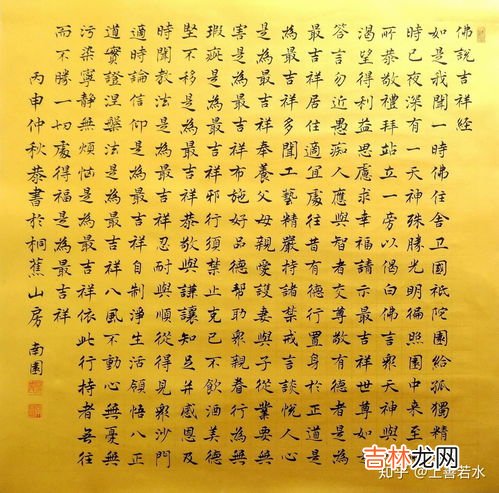 佛說吉祥經
如是我聞一時佛住舍卫國祇陀園給孤獨精
時已夜深有一天神殊勝光明徧照園中来至
所恭敬禮拜站立一旁以偈白佛言眾天神與
渴望得利益思慮求幸福請示最吉祥世尊如是
答言勿近愚痴人應與智者交尊敬有德者是為
最吉祥居住適宜處往昔有德行置身於正道是
為最吉祥多聞工藝精嚴持諸禁戒言談悅人心
是為最吉祥奉養父母親愛護妻與子從業要無
害是為最吉祥布施好品德幫助眾親眷行為無
瑕疵是為最吉祥邪行須禁止克己不飲酒美德
堅不移是為最吉祥恭敬與謙讓知足并感恩及
時聞教法是為最吉祥忍耐與順從得見眾沙門
適時論信仰是為最吉祥自制淨生活領悟八正
道實證涅槃法是為最吉祥八風不動心無憂無
污染寧靜無煩惱是為最吉祥依此行持者無往
而不勝一切處得福是為最吉祥
丙申仲秋恭書於桐蕉山房 南園
知乎 @上善若水
吉林龙网